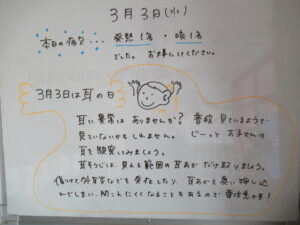 3月3日(水)
本日の病欠... 発熱1名・咳1名
でした。お大事にしてください。
3月3日は耳の日
耳に異常はありませんか? 普段見ているようで
見ていないかもしれません。じーっとお子さんの
耳を観察してみましょう。
耳そうじは、見える範囲の耳あかだけ取りましょう。
傷つけ外耳炎などを発症したり、耳あかを奥に押し込
んでしまい、聞こえにくくなることもあるので要注意です!